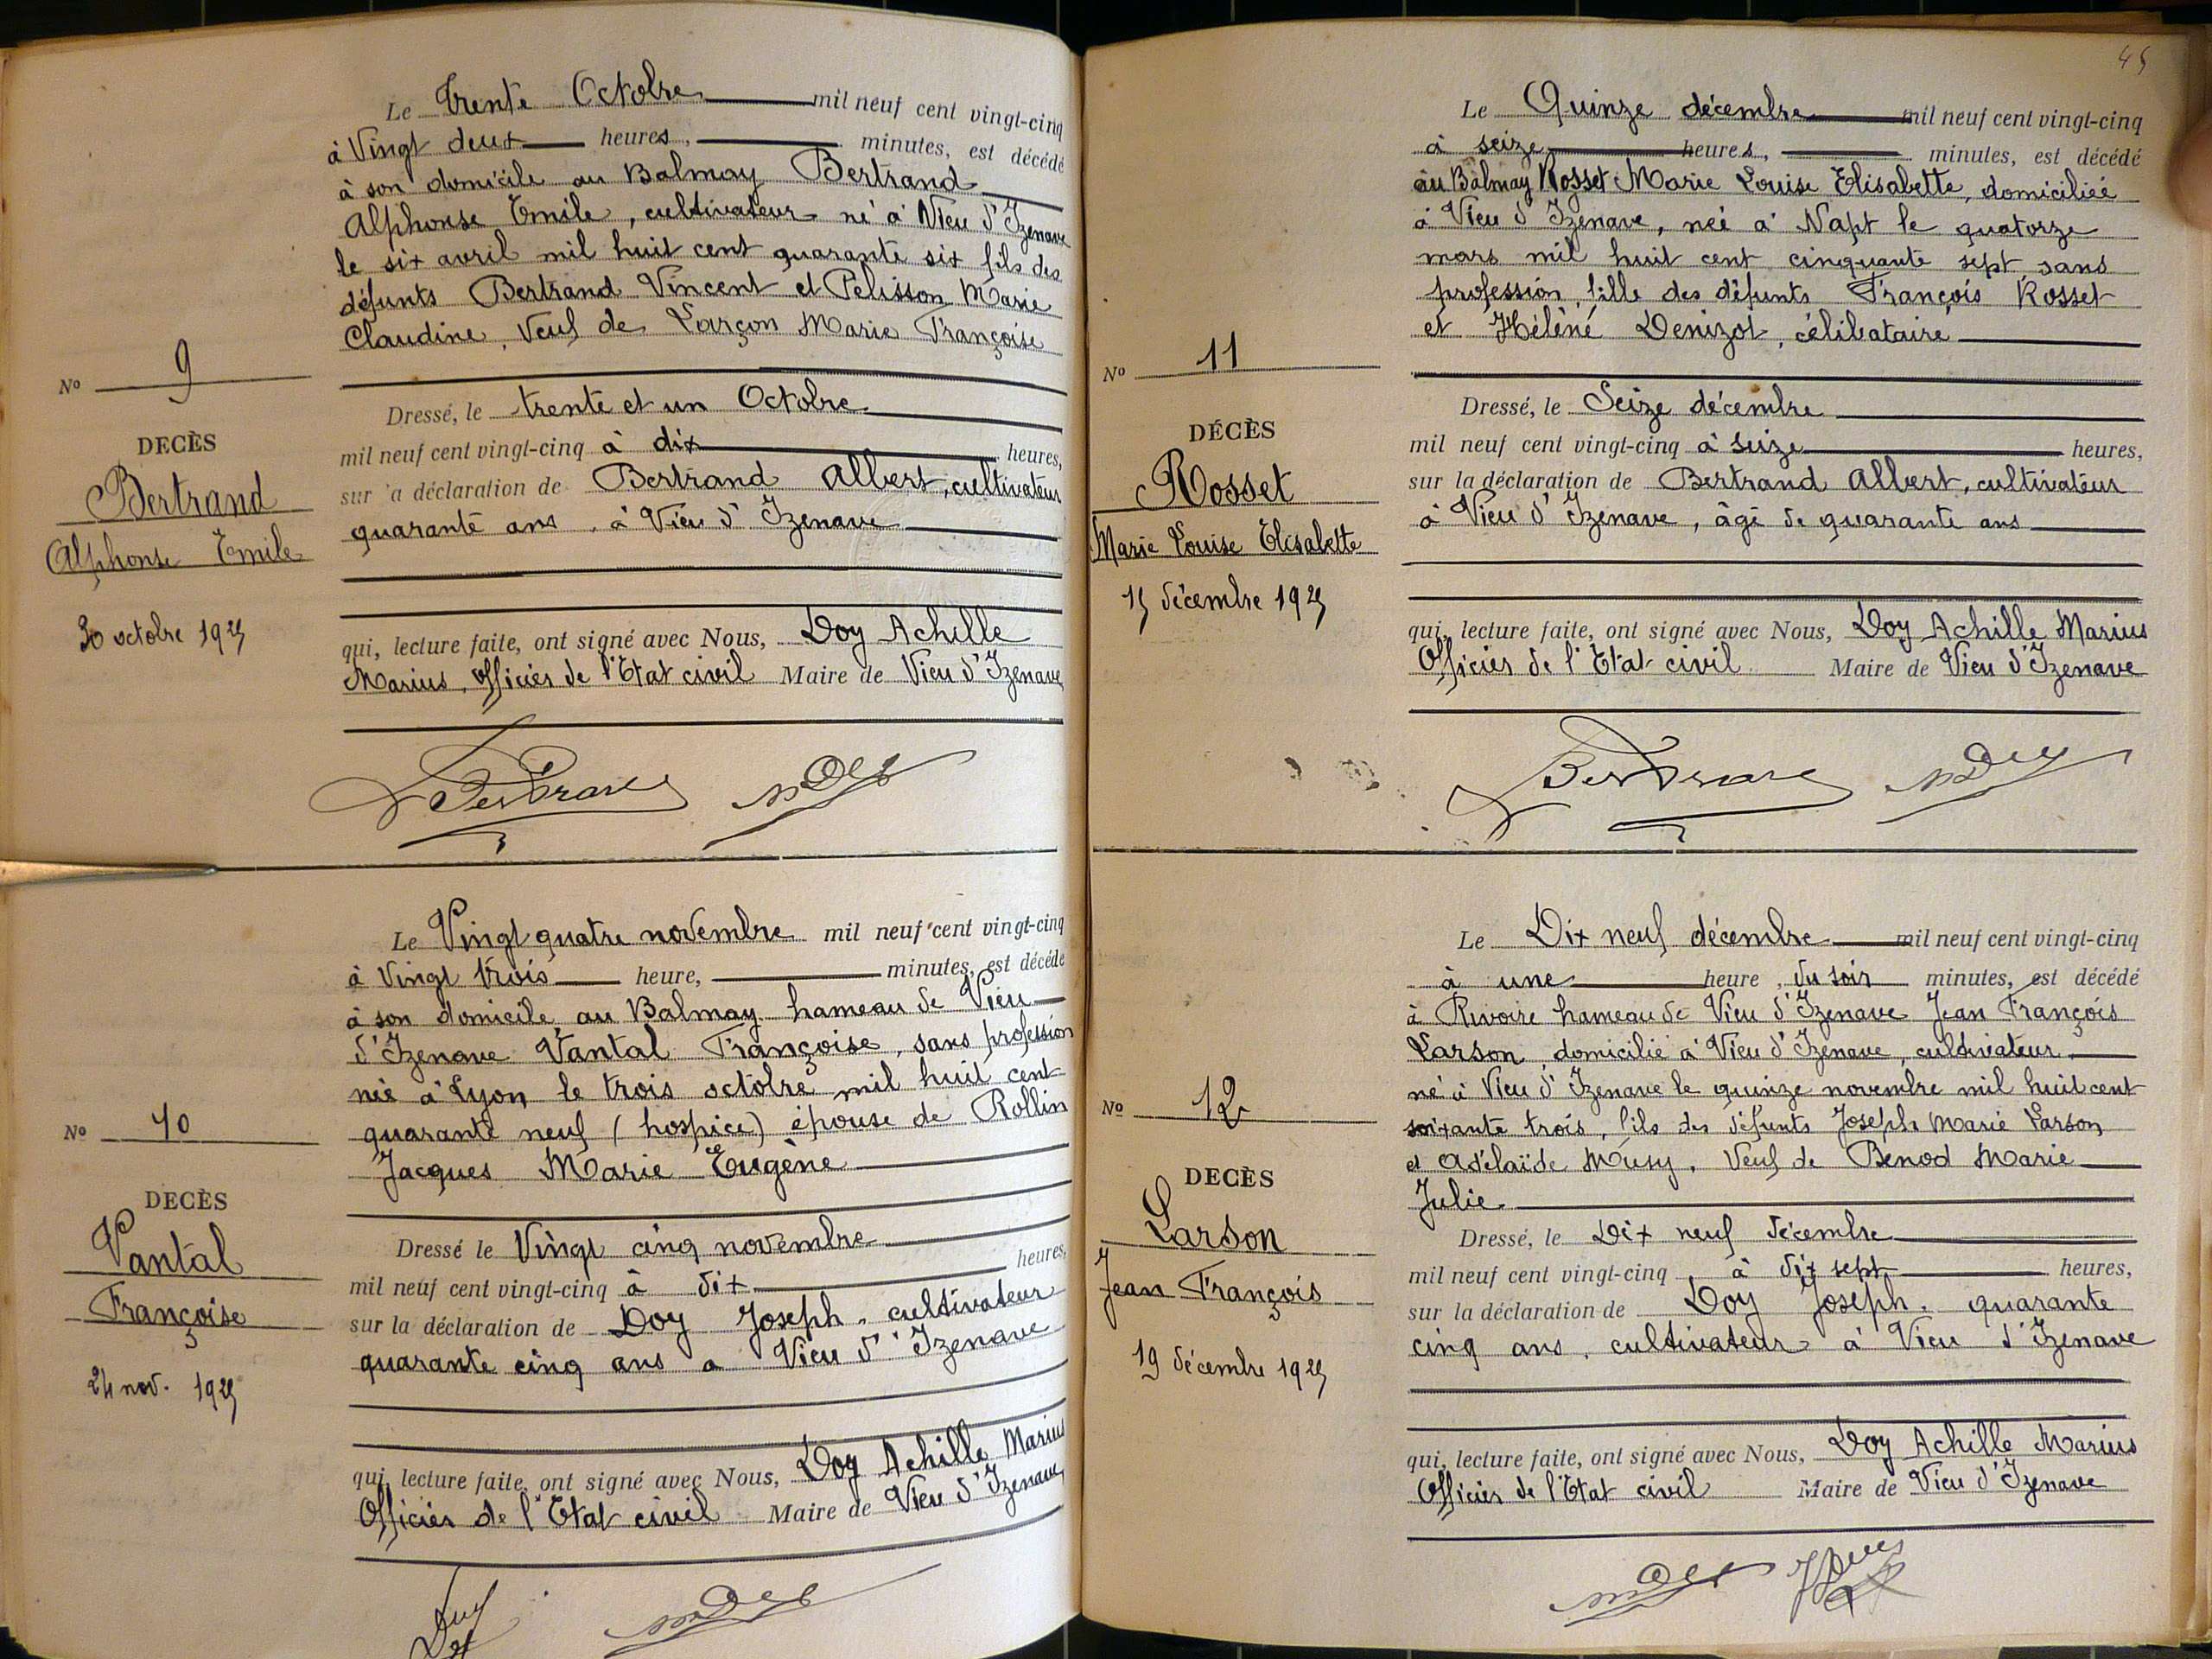 Le Trente Octobre mil neuf cent vingt-cinq
à Vingt deux heures, minutes, est décédé
à son domicile au Balmay Bertrand
Alphonse Emile, cultivateur né à Vieu d'Izenave
le six avril mil huit cent quarante six fils des
défunts Bertrand Vincent et Pelisson Marie
Claudine, Veuf de Larçon Marie Françoise
No 9
DECÈS
Bertrand
Alphonse Emile
30 octobre 1925
Dressé, le trente et un Octobre
mil neuf cent vingt-cinq à dix heures,
sur a déclaration de Bertrand Albert, cultivateur
quarante ans, à Vieu d'Izenave
qui, lecture faite, ont signé avec Nous, Doy Achille
Marius, Officier de l'Etat civil Maire de Vieu d'Izenave
Le Vingt quatre novembre mil neuf cent vingt-cinq
à Vingt trois heure, minutes, est décédé
à son domicile au Balmay hameau de Vieu
d'Izenave Vantal Françoise, sans profession
née à Lyon le trois octobre mil huit cent
quarante neuf (hospice) épouse de Rollin
Jacques Marie Eugène
No 10
DECÈS
Vantal
Françoise
24 nov. 1925
Dressé le Vingt cinq novembre
mil neuf cent vingt-cinq à dix heures,
sur la déclaration de Doy Joseph, cultivateur
quarante cinq ans a Vieu d'Izenave
qui, lecture faite, ont signé avec Nous, Doy Achille Marius
Officier de l'Etat civil Maire de Vieu d'Izenave
45
Le Quinze décembre mil neuf cent vingt-cinq
à seize heures, minutes, est décédé
au Balmay Rosset Marie Louise Elisabette, domiciliée
à Vieu d'Izenave, née à Napt le quatorze
mars mil huit cent cinquante sept, sans
profession, fille des défunts François Rosset
et Hélène Denizot, célibataire
No 11
DÉCÈS
Rosset
Marie Louise Elisabette
15 décembre 1925
Dressé, le Seize décembre
mil neuf cent vingt-cinq à seize heures,
sur la déclaration de Bertrand Albert, cultivateur
à Vieu d'Izenave, âgé de quarante ans
qui, lecture faite, ont signé avec Nous, Doy Achille Marius
Officier de l'Etat civil Maire de Vieu d'Izenave
Bertrand
Le Dix neuf décembre mil neuf cent vingt-cinq
à une heure, du soir minutes, est décédé
à Rivoire hameau de Vieu d'Izenave Jean François
Larson, domicilié à Vieu d'Izenave, cultivateur
né à Vieu d'Izenave le quinze novembre mil huit cent
soixante trois, fils des défunts Joseph Marie Larson
et Adélaïde Musy, Veuf de Benod Marie
Julie
No 12
DECÈS
Larson
Jean François
19 décembre 1925
Dressé, le Dix neuf décembre
mil neuf cent vingt-cinq, à dix sept heures,
sur la déclaration de Doy Joseph, quarante
cinq ans, cultivateur à Vieu d'Izenave
qui, lecture faite, ont signé avec Nous, Doy Achille Marius
Officier de l'Etat civil Maire de Vieu d'Izenave